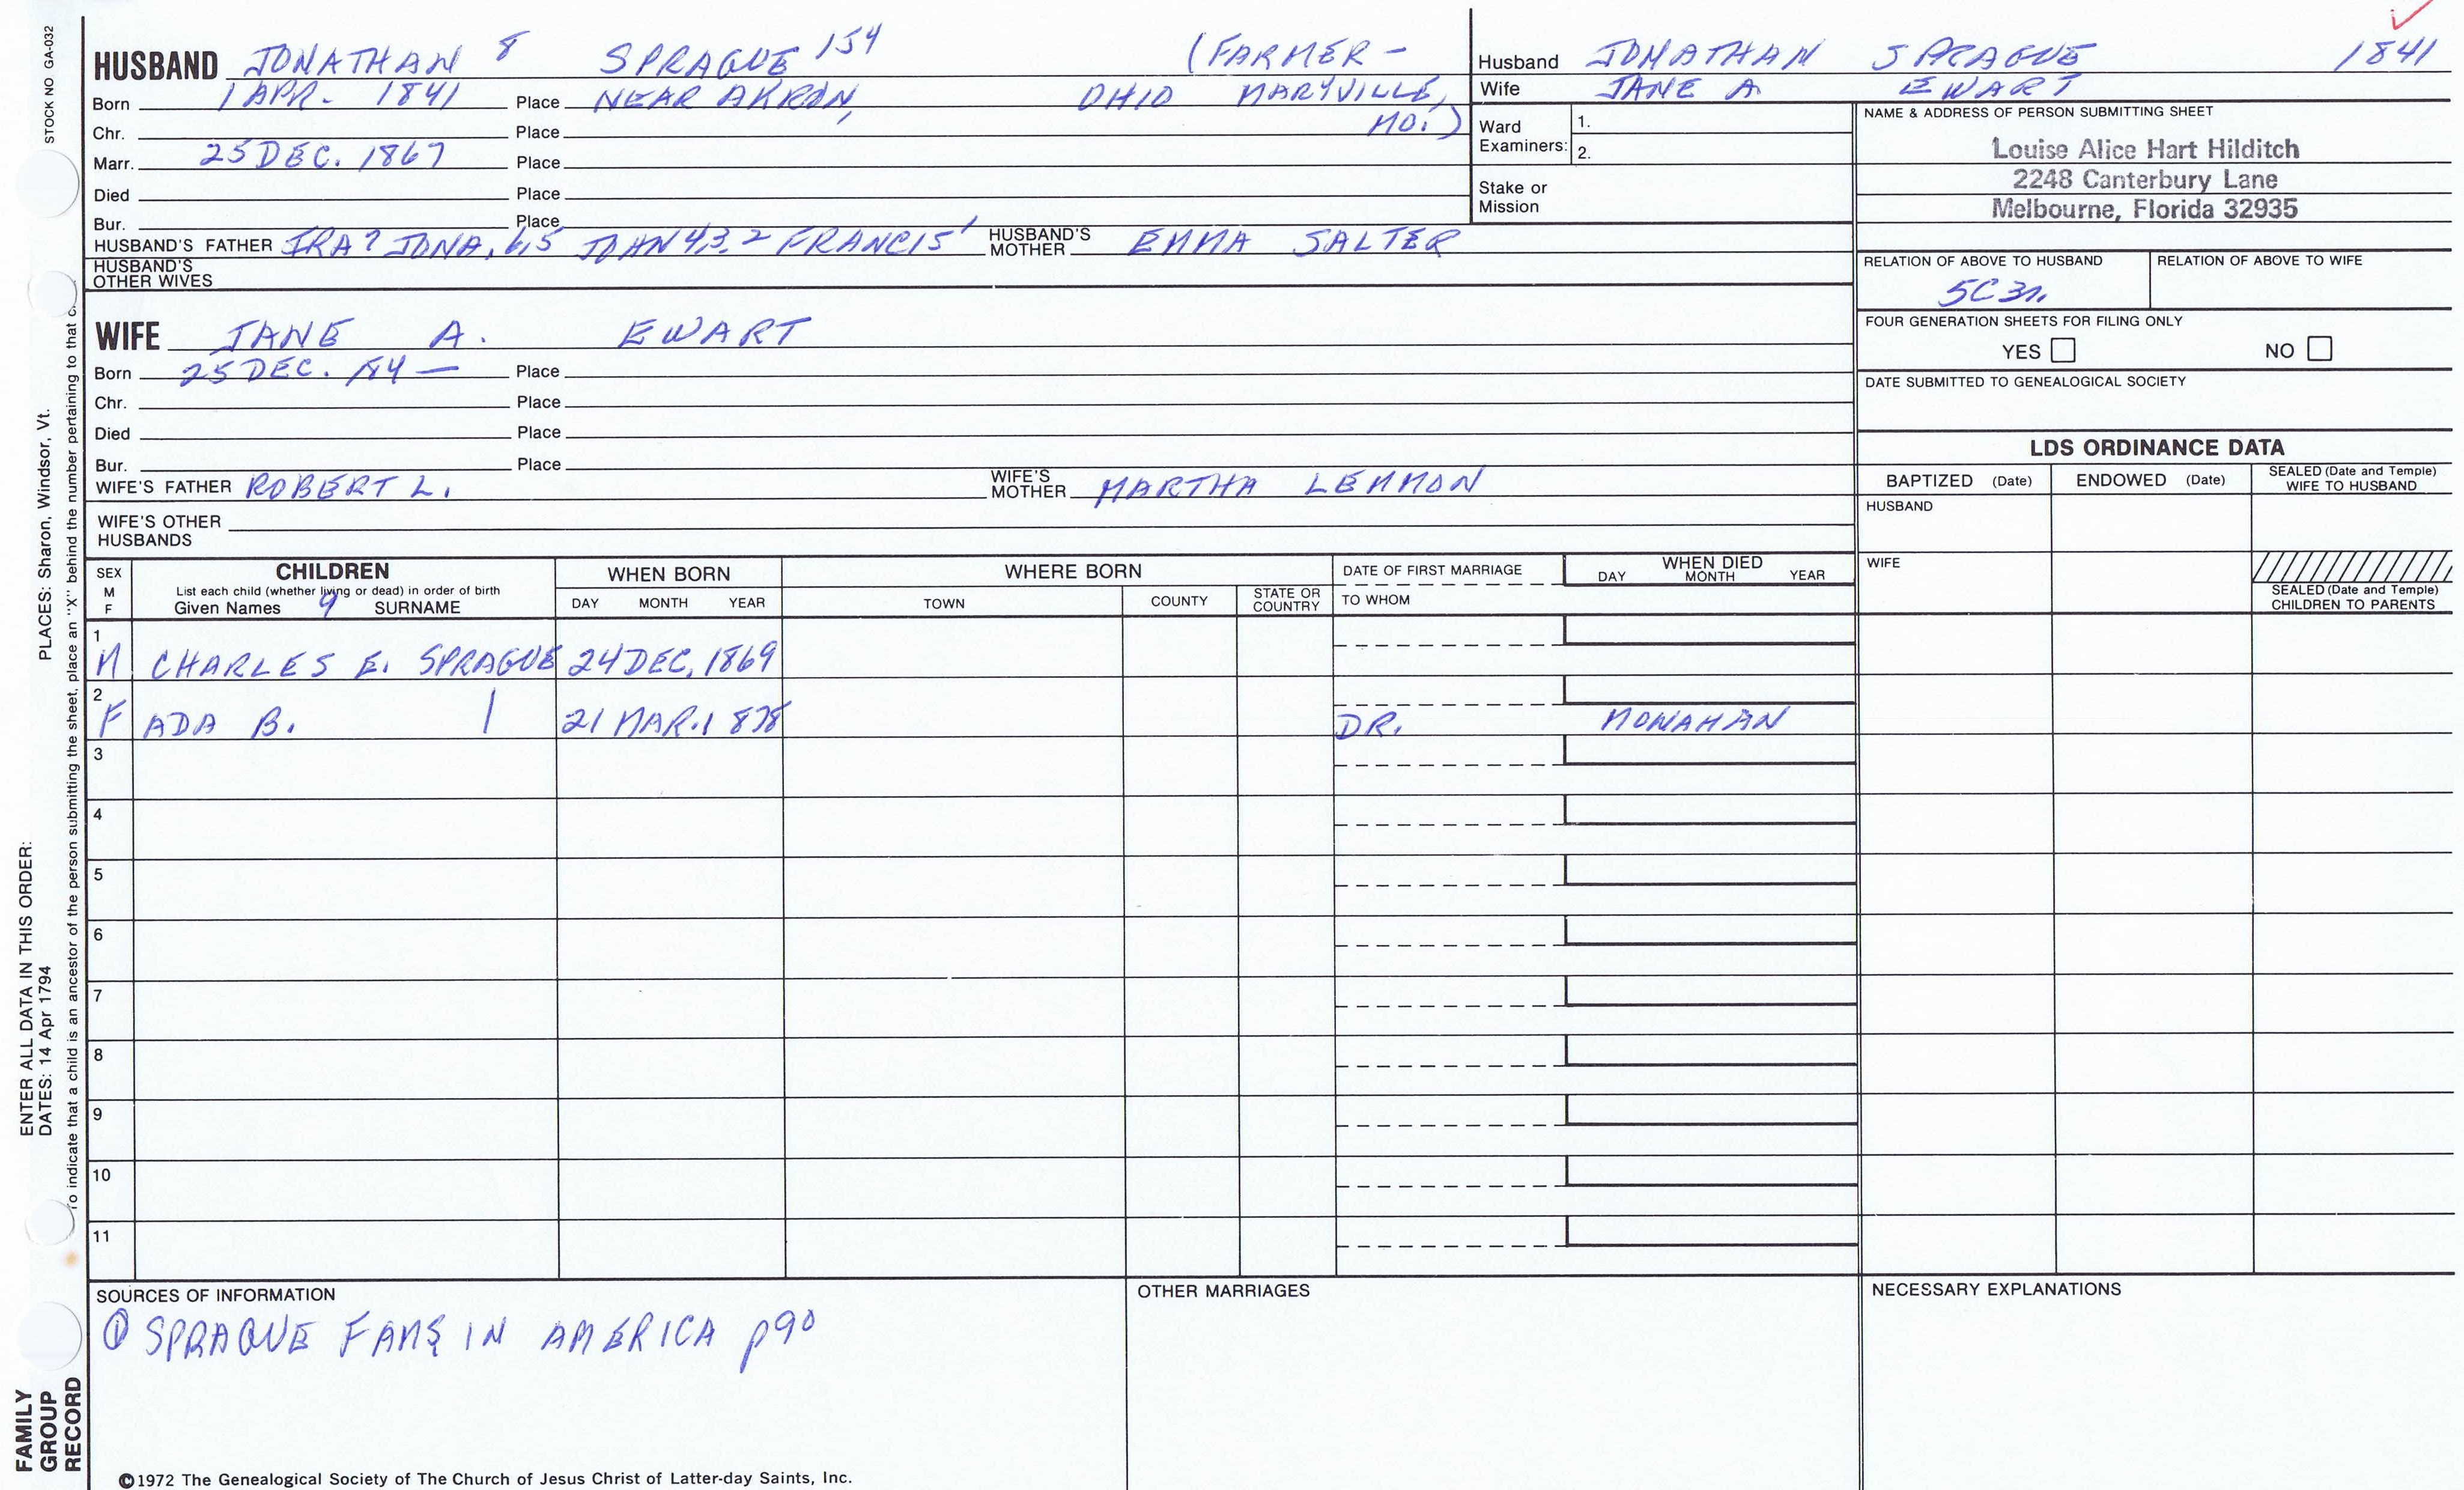 STOCK NO GA-032
HUSBAND JONATHAN 8 SPRAGUE 154 (FARMER -
Born 1 APR. 1841 Place NEAR AKRON, OHIO MARYVILLE,
Chr. Place MO.)
Marr. 25 DEC. 1867 Place
Died Place
Bur. Place
HUSBAND'S FATHER IRA 7 JONA. 6,5 JOHN 4,3,2 FRANCIS 1 HUSBAND'S MOTHER EMMA SALTER
HUSBAND'S OTHER WIVES
Husband JONATHAN SPRAGUE 1841
Wife JANE A. EWART
Ward Examiners: 1.
2.
Stake or Mission
NAME & ADDRESS OF PERSON SUBMITTING SHEET
Louise Alice Hart Hilditch
2248 Canterbury Lane
Melbourne, Florida 32935
RELATION OF ABOVE TO HUSBAND RELATION OF ABOVE TO WIFE
5C 3r.
FOUR GENERATION SHEETS FOR FILING ONLY
YES NO
DATE SUBMITTED TO GENEALOGICAL SOCIETY
WIFE JANE A. EWART
Born 25 DEC. 184— Place
Chr. Place
Died Place
Bur. Place
WIFE'S FATHER ROBERT L. WIFE'S MOTHER MARTHA LEMMON
WIFE'S OTHER HUSBANDS
LDS ORDINANCE DATA
BAPTIZED (Date) ENDOWED (Date) SEALED (Date and Temple) WIFE TO HUSBAND
HUSBAND
WIFE
SEALED (Date and Temple) CHILDREN TO PARENTS
SEX M F
CHILDREN
List each child (whether living or dead) in order of birth
Given Names 9 SURNAME
WHEN BORN
DAY MONTH YEAR
WHERE BORN
TOWN COUNTY STATE OR COUNTRY
DATE OF FIRST MARRIAGE
TO WHOM
WHEN DIED
DAY MONTH YEAR
1 M CHARLES E. SPRAGUE 24 DEC. 1869
2 F ADA B. | 21 MAR. 1878 DR. MONAHAN
3
4
5
6
7
8
9
10
11
SOURCES OF INFORMATION
① SPRAGUE FAMS IN AMERICA p90
OTHER MARRIAGES
NECESSARY EXPLANATIONS
©1972 The Genealogical Society of The Church of Jesus Christ of Latter-day Saints, Inc.
FAMILY GROUP RECORD
ENTER ALL DATA IN THIS ORDER:
DATES: 14 Apr 1794 PLACES: Sharon, Windsor, Vt.
To indicate that a child is an ancestor of the person submitting the sheet, place an "X" behind the number pertaining to that c